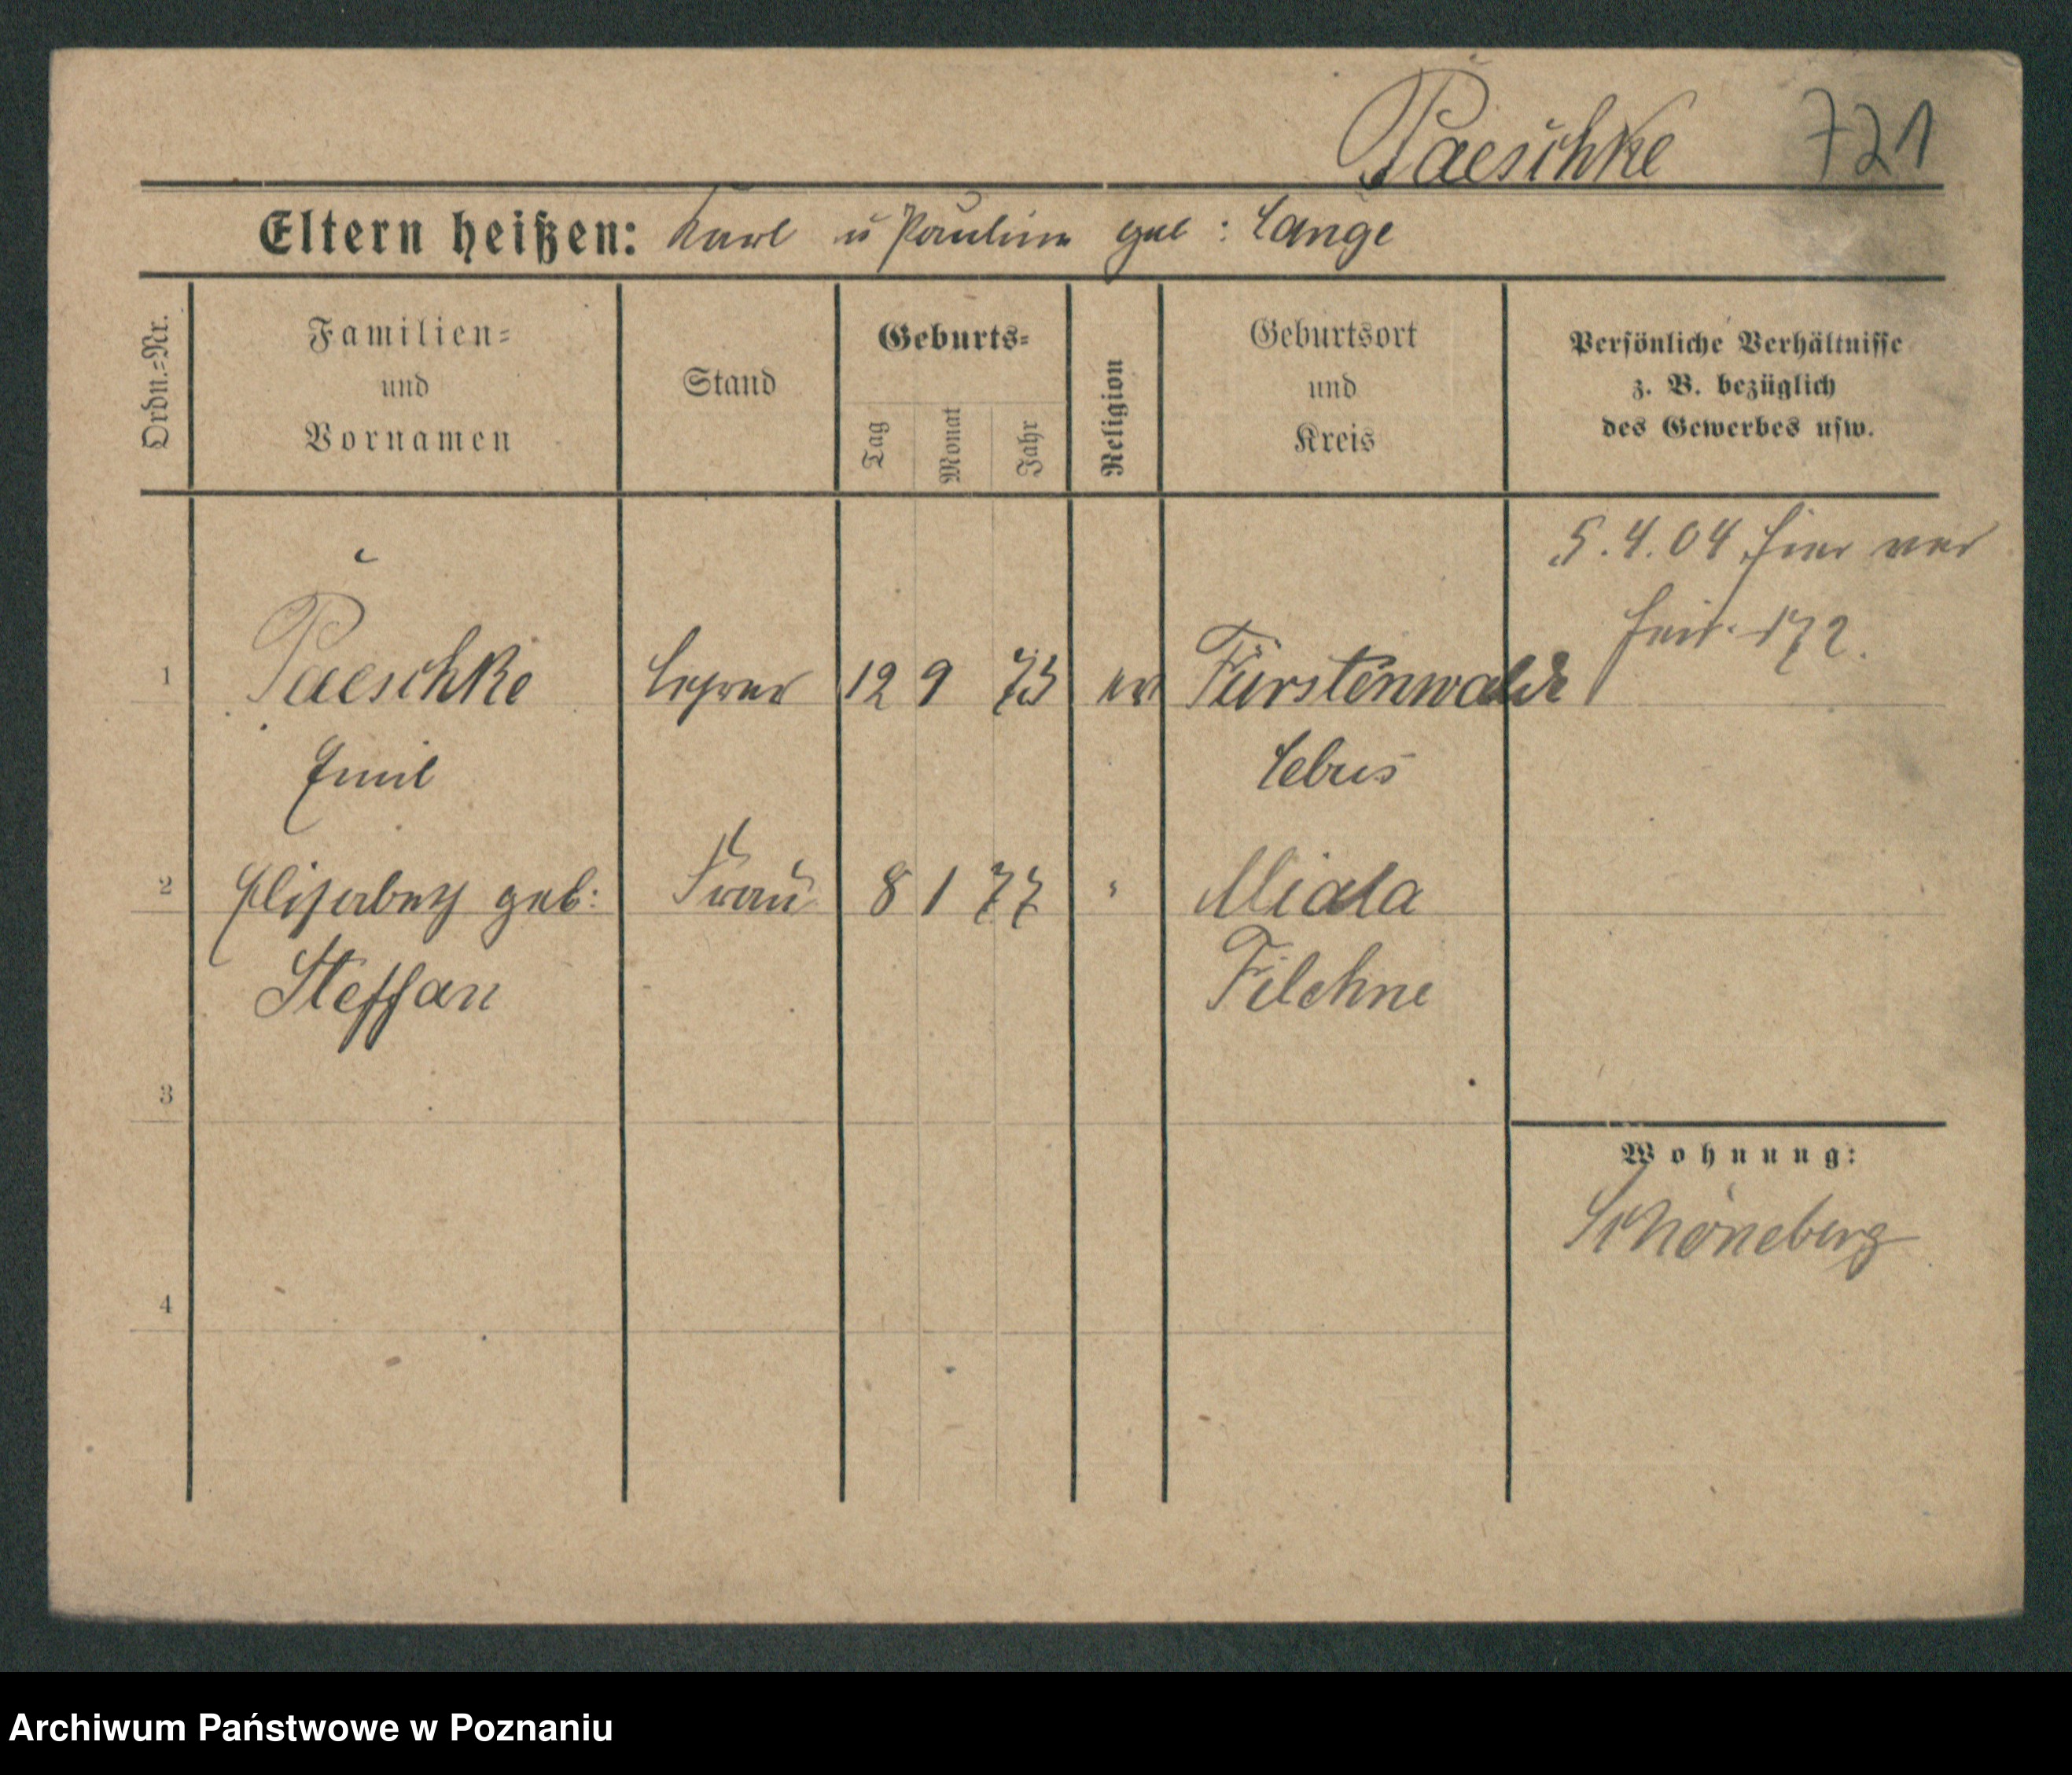 Paeschke 721
Eltern heißen: Karl u Pauline geb: Lange
Ordn.=Nr.
Familien=
und
Vornamen
Stand
Geburts=
Tag
Monat
Jahr
Religion
Geburtsort
und
Kreis
Persönliche Verhältnisse
z. B. bezüglich
des Gewerbes usw.
5.4.04 hier ver
heir. 172.
1 Paeschke Lehrer 12 9 73 ev Fürstenwalde
Emil Lebus
2 Elisabeth geb: Frau 8 1 77 " Miala
Steffan Filehne
3
Wohnung:
Schöneberg
4
Archiwum Państwowe w Poznaniu